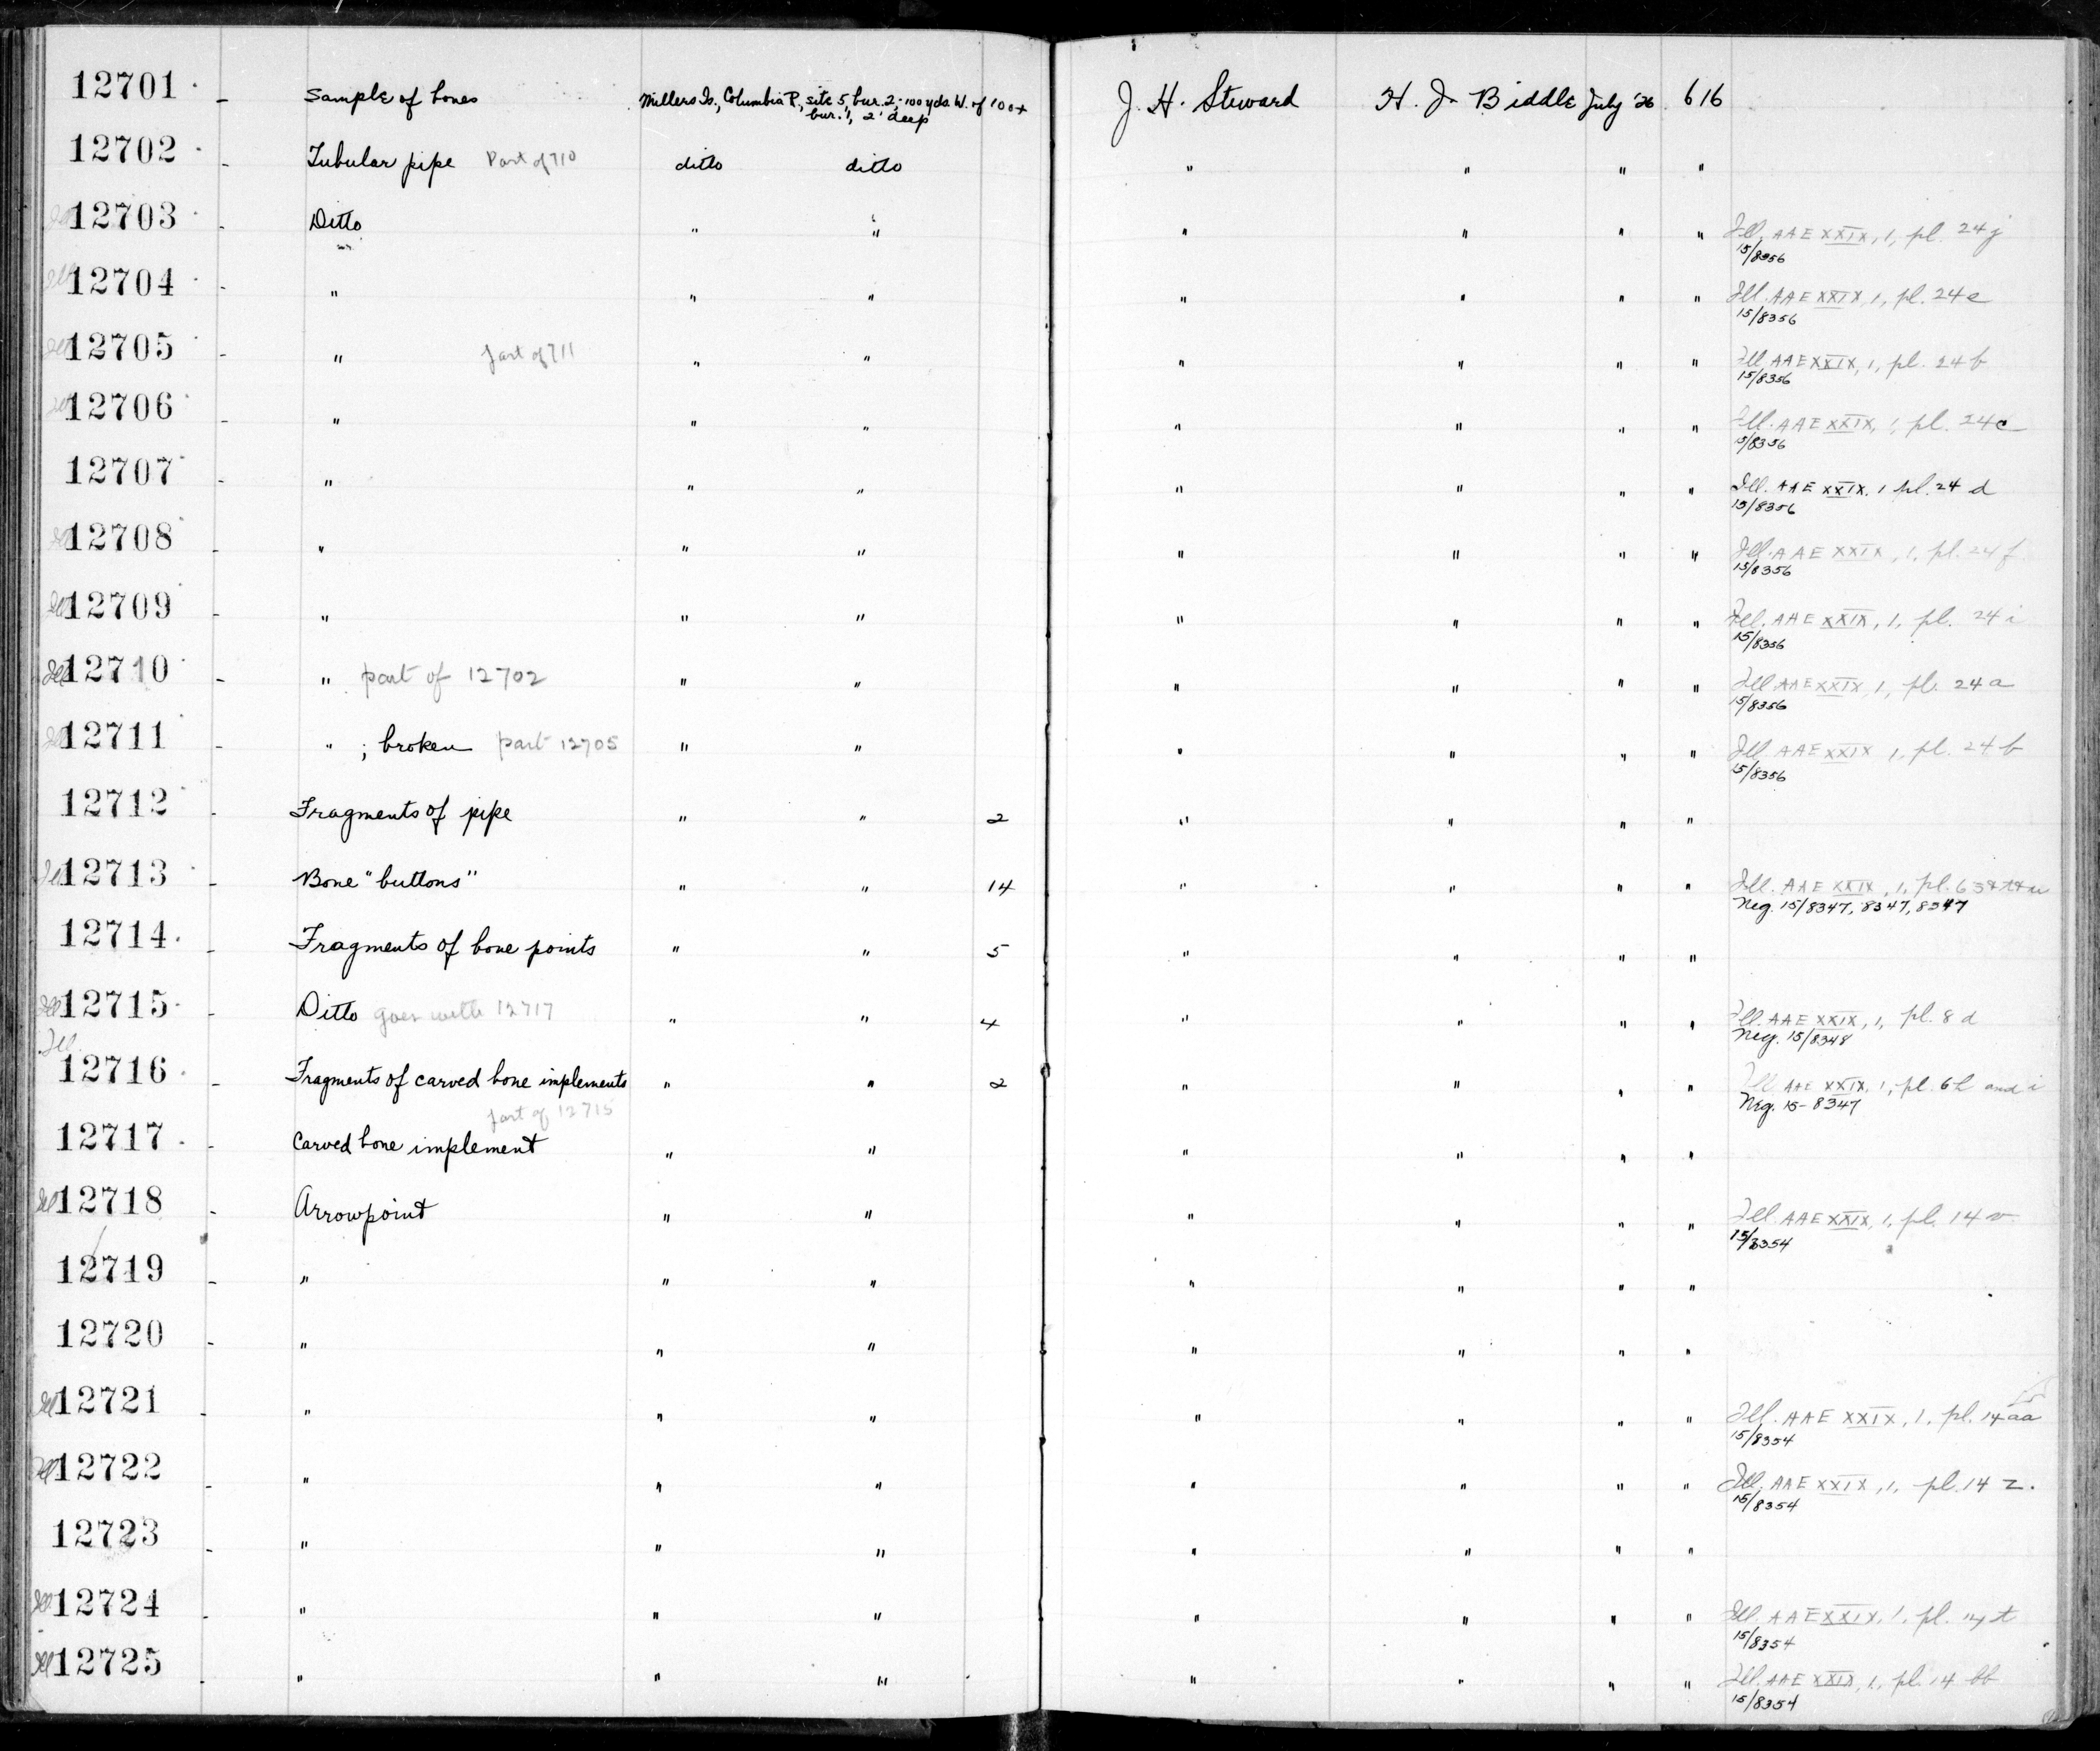 12701 - Sample of bones Millers Is., Columbia R., site 5, bur. 2; 100 yds. W. of 100+ J. H. Steward H. J. Biddle July '26 616
bur. 1, 2' deep
12702 - Tubular pipe Part of 710 ditto ditto " " " "
Ill 12703 - Ditto " " " " " " Ill. AAE XXIX, 1, pl. 24 j
15/8356
Ill 12704 - " " " " " " " Ill. AAE XXIX, 1, pl. 24 e
15/8356
Ill 12705 - " part of 711 " " " " " " Ill. AAE XXIX, 1, pl. 24 b
15/8356
Ill 12706 - " " " " " " " Ill. AAE XXIX, 1, pl. 24 c
15/8356
12707 - " " " " " " " Ill. AAE XXIX. 1 pl. 24 d
15/8356
Ill 12708 - " " " " " " " Ill. AAE XXIX, 1, pl. 24 f
15/8356
Ill 12709 - " " " " " " " Ill. AAE XXIX, 1, pl. 24 i
15/8356
Ill 12710 - " part of 12702 " " " " " " Ill. AAE XXIX, 1, pl. 24 a
15/8356
Ill 12711 - " ; broken part 12705 " " " " " " Ill AAE XXIX 1, pl. 24 b
15/8356
12712 - Fragments of pipe " " 2 " " " "
Ill 12713 - Bone "buttons" " " 14 " " " " Ill. AAE XXIX, 1, pl. 6
Neg. 15/8347, 8347, 8347
12714 - Fragments of bone points " " 5 " " " "
Ill 12715 - Ditto goes with 12717 " " 4 " " " " Ill. AAE XXIX, 1, pl. 8 d
Neg. 15/8348
Ill.
12716 - Fragments of carved bone implements " " 2 " " " " Ill AAE XXIX, 1, pl. 6 h and i
Neg. 15-8347
part of 12715
12717 - Carved bone implement " " " " " "
Ill 12718 - Arrowpoint " " " " " " Ill. AAE XXIX, 1, pl. 14 v
15/8354
12719 - " " " " " " "
12720 - " " " " " " "
Ill 12721 - " " " " " " " Ill. AAE XXIX, 1, pl. 14 aa
15/8354
Ill 12722 - " " " " " " " Ill. AAE XXIX, 1, pl. 14 z.
15/8354
12723 - " " " " " " "
Ill 12724 - " " " " " " " Ill. AAE XXIX, 1, pl. 14 t
15/8354
Ill 12725 - " " " " " " " Ill. AAE XXIX, 1, pl. 14 bb
15/8354